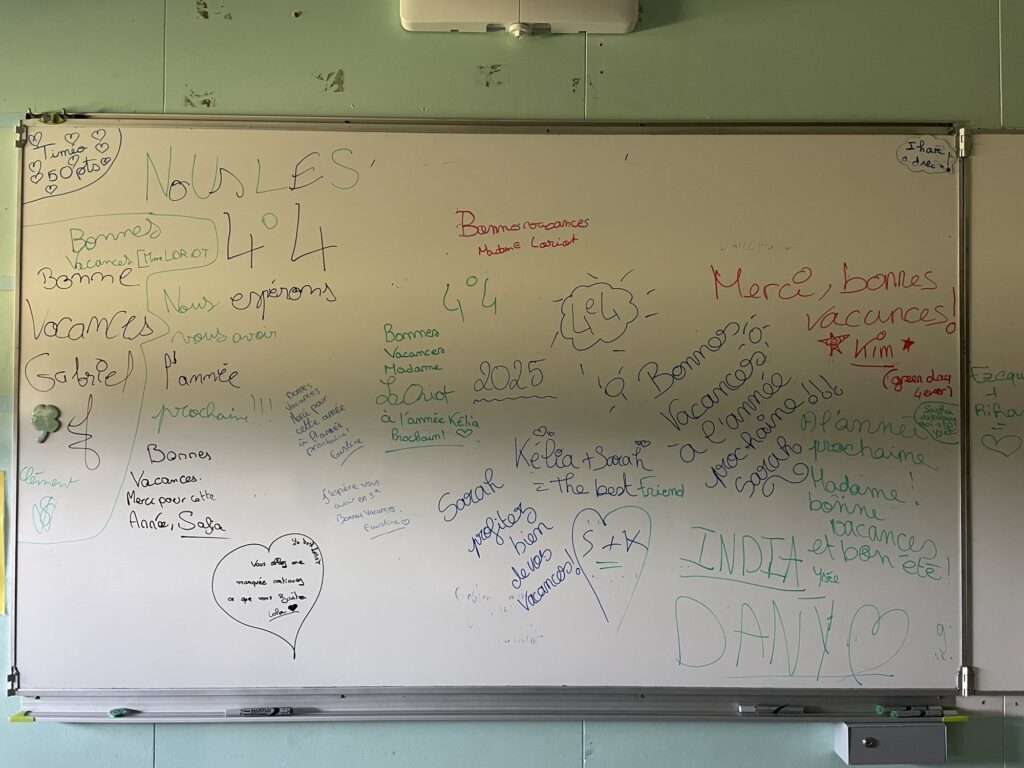 Timéo
50 pts
NOUS LES
4°4
Bonnes
Vacances Mme LORIOT
Bonne
Vacances
Gabriel
Nous espérons
vous avoir
l'année
prochaine!!!
Clément
Bonnes
Vacances.
Merci pour cette
Année, Safia
Bonnes
Vacances
Merci pour
cette année
à l'année
prochaine!
Faustine
J'espère vous
avoir en 3e
Bonnes Vacances.
Faustine
Vous allez me
manquée continuez
ce que vous
Bonnes vacances
Madame Loriot
4°4
Bonnes
Vacances
Madame
LOriot
à l'année Kélia
Prochain!
2025
4e4
Kélia + Sarah
= the best Friend
Sarah
profitez
bien
de vos
Vacances!
S+K
=
Bonnes
Vacances
à l'année
prochaine
Sarah
I have
a dream!
Merci, bonnes
vacances!
Kim
(green day
4ever)
A l'année
prochaine
Madame!
bonne
vacances
et bon été!
Ysée
INDIA
DANY